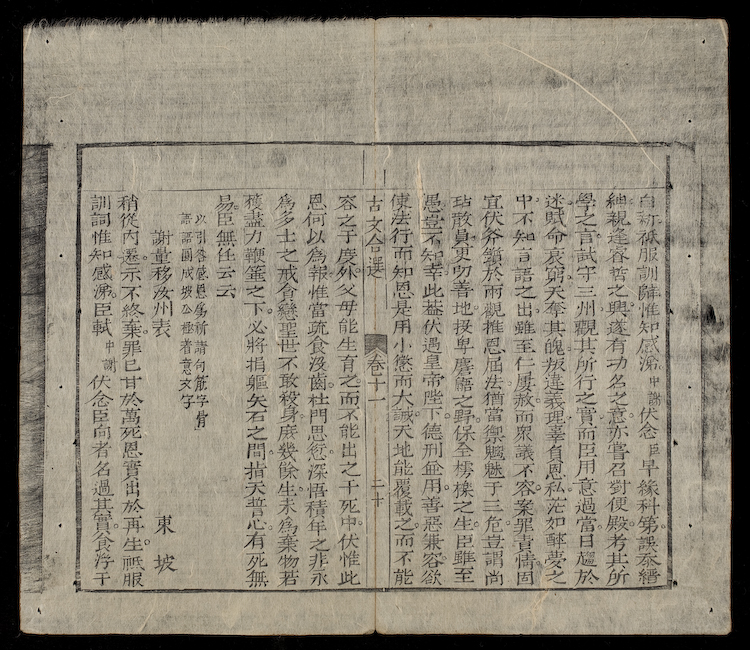 自新祗服訓辭惟知感涕中謝伏念臣早緣科第誤忝縉
紳親逢睿哲之興遂有功名之意亦嘗召對便殿考其所
學之言試守三州觀其所行之實而臣用意過當日趨於
迷賦命衰窮天奪其魄叛違義理辜負恩私茫如醉夢之
中不知言語之出雖至仁屢赦而衆議不容案罪責情固
宜伏斧鑕於兩觀推恩屈法猶當禦魑魅于三危豈謂尚
玷散員更叨善地投畀麏鼯之野保全樗櫟之生臣雖至
愚豈不知幸此蓋伏遇皇帝陛下德刑並用善惡兼容欲
使法行而知恩是用小懲而大誡天地能覆載之而不能
古文合選 卷十一 二十
容之于度外父母能生育之而不能出之于死中伏惟此
恩何以爲報惟當蔬食沒齒杜門思愆深悟積年之非永
爲多士之戒貪戀聖世不敢殺身庶幾餘生未爲棄物若
獲盡力鞭箠之下必將捐軀矢石之間指天誓心有死無
易臣無任云云
以引咎感恩爲祈請句筋字骨
語語圓成坡公極著意文字
謝量移汝州表 東坡
稍從內遷示不終棄罪已甘於萬死恩實出於再生祗服
訓詞惟知感涕臣軾中謝伏念臣向者名過其實食浮于